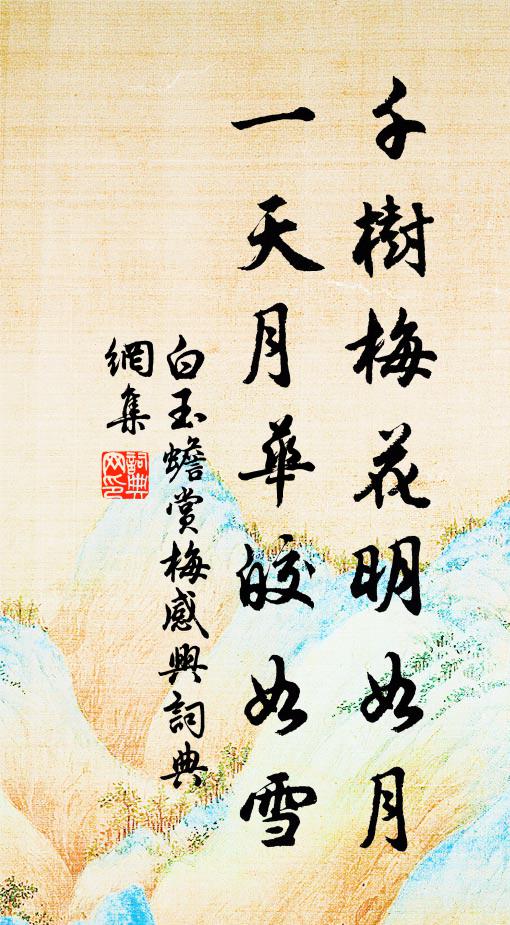 千樹梅花明如月
一天月華皎如雪
白玉蟾賞梅感興詞典
網集
詞典
网印